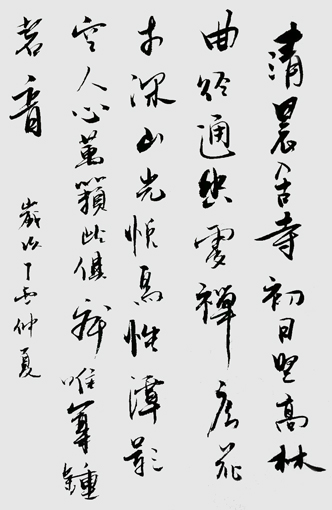 清晨入古寺初日照高林
曲徑通幽處禪房花
木深山光悅鳥性潭影
空人心萬籟此俱寂唯聞鍾
磬音
歲次丁仲夏